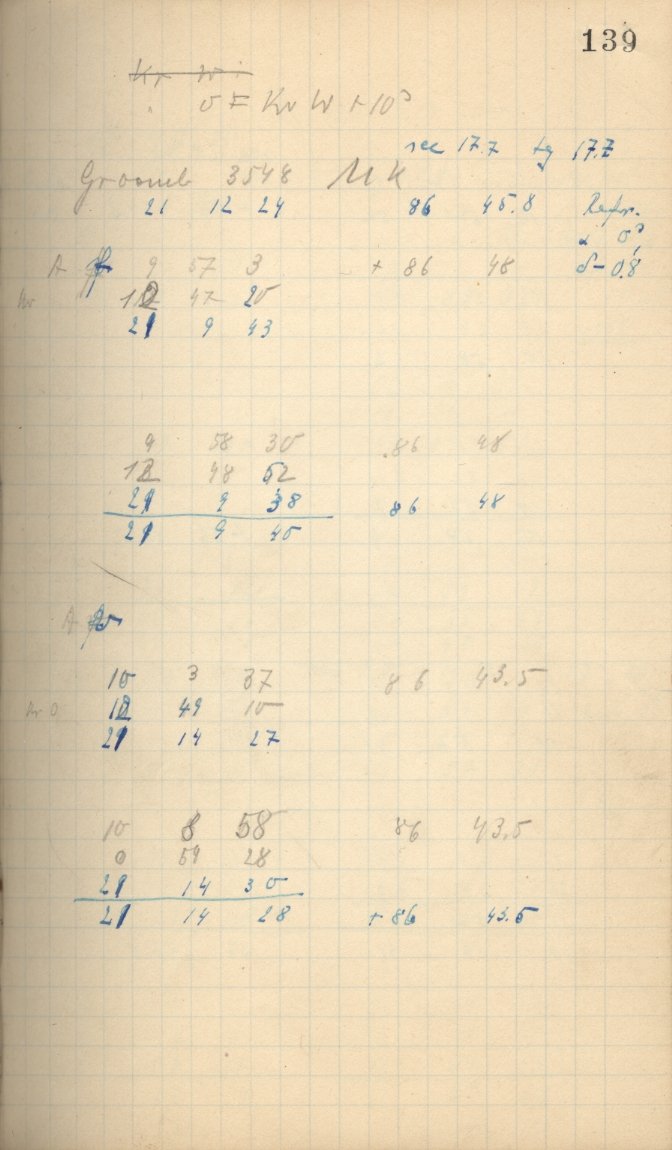 139
Kr W
σ = Kr W + 10
sec 17.7 tg 17.7
Groomb 3548 UK
21 12 24 86 45.8 Refr.
A 9 57 3 + 86 48 δ - 0.8
12 47 20
21 9 43
9 58 30 86 48
12 48 52
21 9 38 86 48
21 9 40
A
10 3 37 86 43.5
12 49 10
21 14 27
10 8 58 86 43.5
0 54 28
21 14 30
21 14 28 + 86 43.5